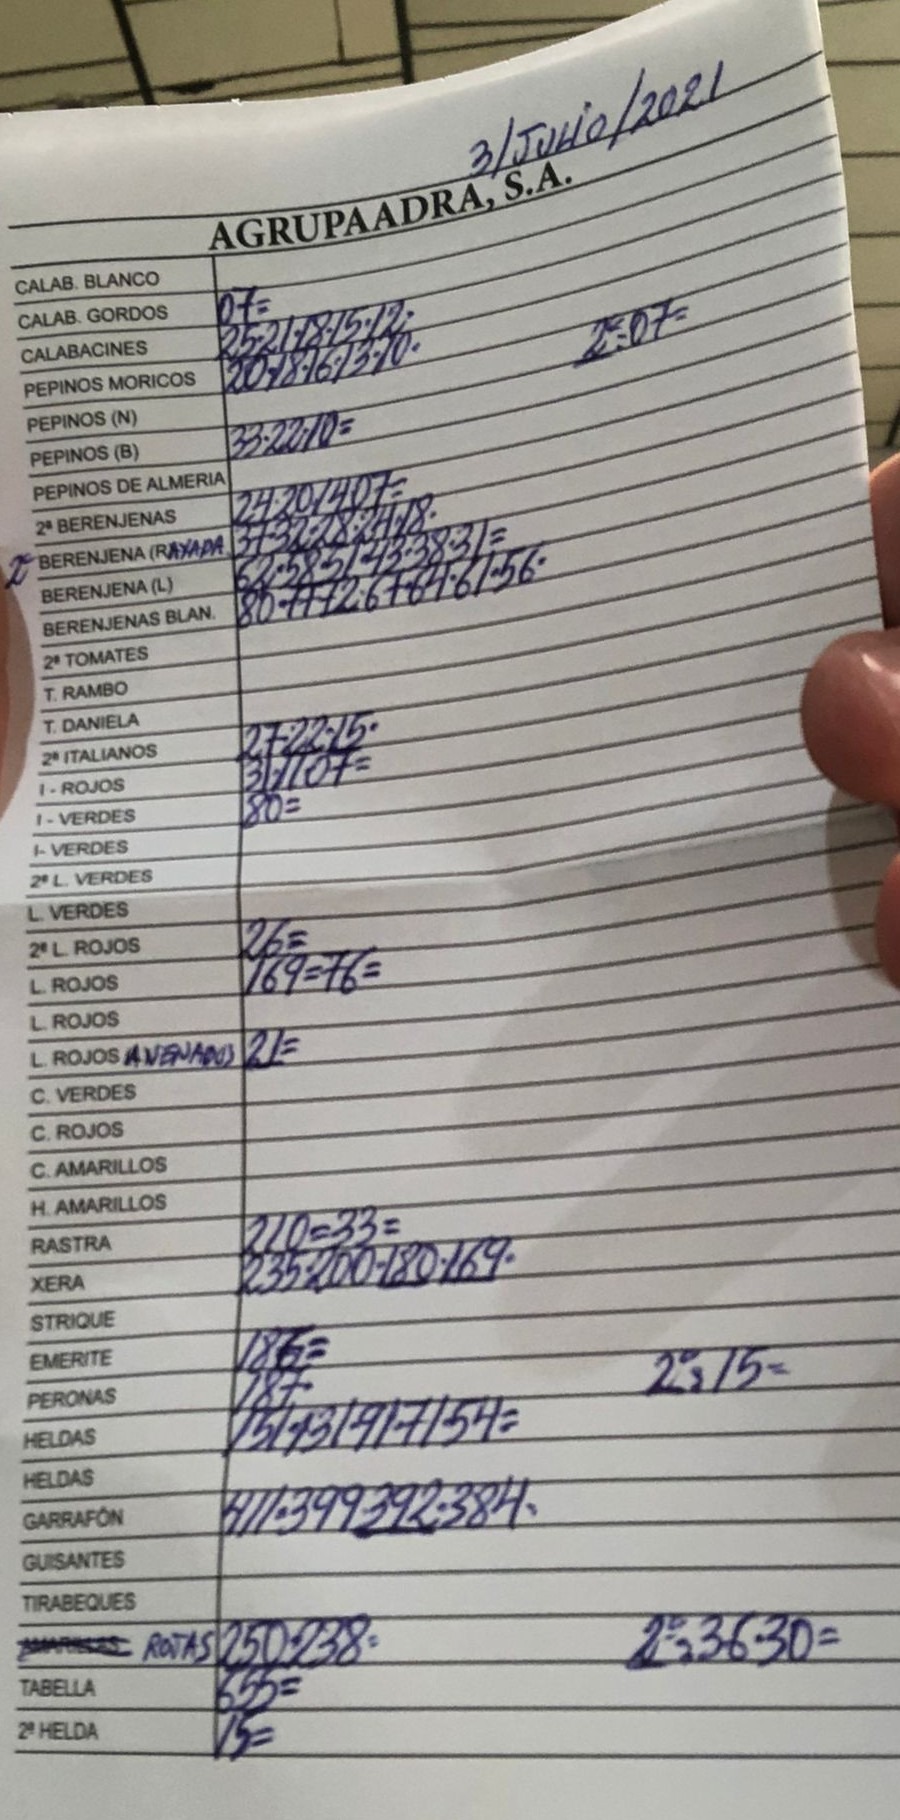 3/JULIO/2021
AGRUPAADRA, S.A.
CALAB. BLANCO
CALAB. GORDOS 07=
CALABACINES 25-21-18-15-12-
PEPINOS MORICOS 20-18-16-13-10- 2ª:07=
PEPINOS (N)
PEPINOS (B) 33-22-10=
PEPINOS DE ALMERIA
2ª BERENJENAS 24-20-14-07=
2ª BERENJENA (RAYADA 37-32-28-24-18-
BERENJENA (L) 62-58-51-43-38-31=
BERENJENAS BLAN. 80-77-72-67-64-61-56-
2ª TOMATES
T. RAMBO
T. DANIELA
2ª ITALIANOS 27-22-15-
I - ROJOS 31-11-07=
I - VERDES 80=
I- VERDES
2ª L. VERDES
L. VERDES
2ª L. ROJOS 26=
L. ROJOS 169=76=
L. ROJOS
L. ROJOS AVENADOS 21=
C. VERDES
C. ROJOS
C. AMARILLOS
H. AMARILLOS
RASTRA 210=33=
XERA 235-200-180-169-
STRIQUE
EMERITE 186=
PERONAS 187- 2ª:15=
HELDAS 151-131-91-71-54=
HELDAS
GARRAFÓN 411-399-392-384-
GUISANTES
TIRABEQUES
ROJAS 250-238- 2ª:36-30=
TABELLA 655=
2ª HELDA 15=